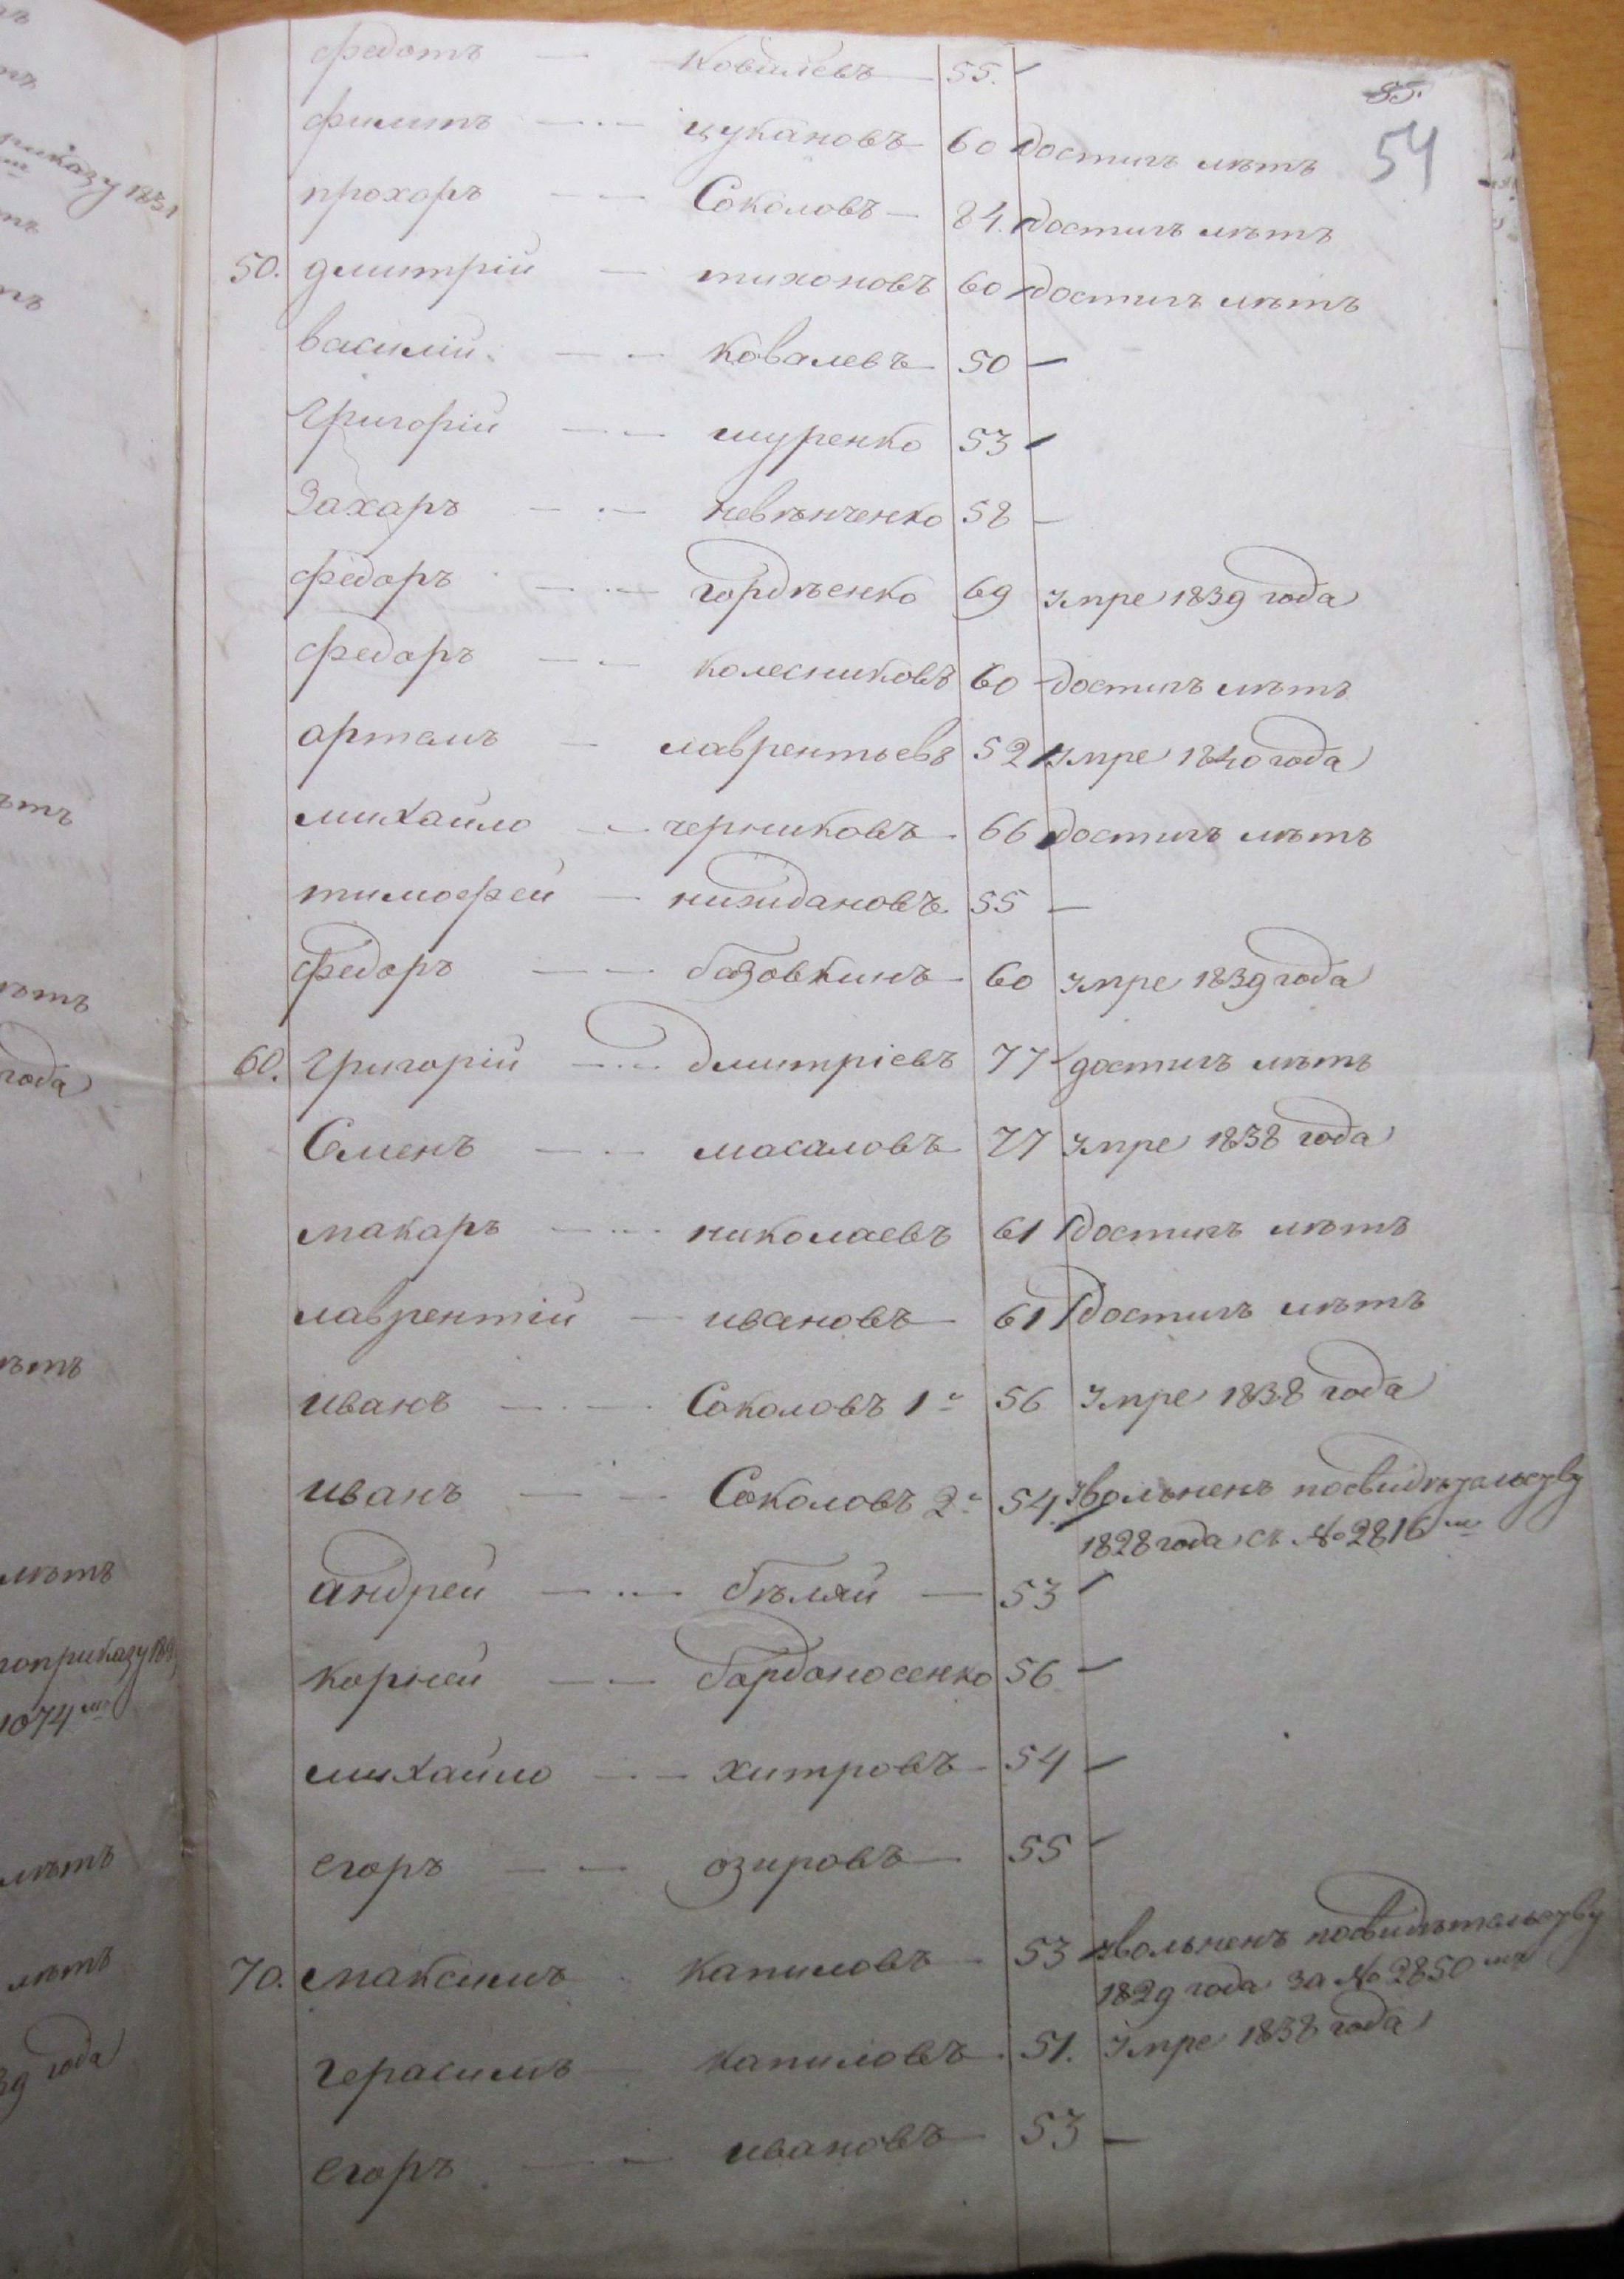 федотъ — ковалевъ — 55.
85.
54
филипъ — цукановъ 60 достигъ лѣтъ
прохоръ — Соколовъ — 84. достигъ лѣтъ
50. дмитрій — тихоновъ 60 достигъ лѣтъ
василій — ковалевъ 50 —
григорій — шуренко 53 —
Захаръ — невѣнченко 58 —
федоръ — гордѣенко 69 умре 1839 года
федоръ — колесниковъ 60 достигъ лѣтъ
артемъ — лаврентьевъ 52 умре 1840 года
михайло — черниковъ 66 достигъ лѣтъ
тимофей — нижидановъ 55 —
федоръ — базовкинъ 60 умре 1839 года
60. григорій — дмитріевъ 77 достигъ лѣтъ
Семенъ — масаловъ 77 умре 1838 года
макаръ — николаевъ 61 достигъ лѣтъ
лаврентій — ивановъ 61 достигъ лѣтъ
иванъ — Соколовъ 1й 56 умре 1838 года
иванъ — Соколовъ 2й 54. увольненъ посвидѣтельству
1828 года съ № 2816мъ
андрей — бѣляй — 53 —
корней — бардоносенко 56 —
михайло — хитровъ 54 —
егоръ — озировъ 55 —
70. максимъ капиловъ 53 увольненъ посвидѣтельству
1829 года за № 2850мъ
герасимъ — капиловъ 51. умре 1838 года
егоръ — ивановъ 53 —
приказу 1831
года
лѣтъ
поприказу
1074мъ
лѣтъ
лѣтъ
39 года